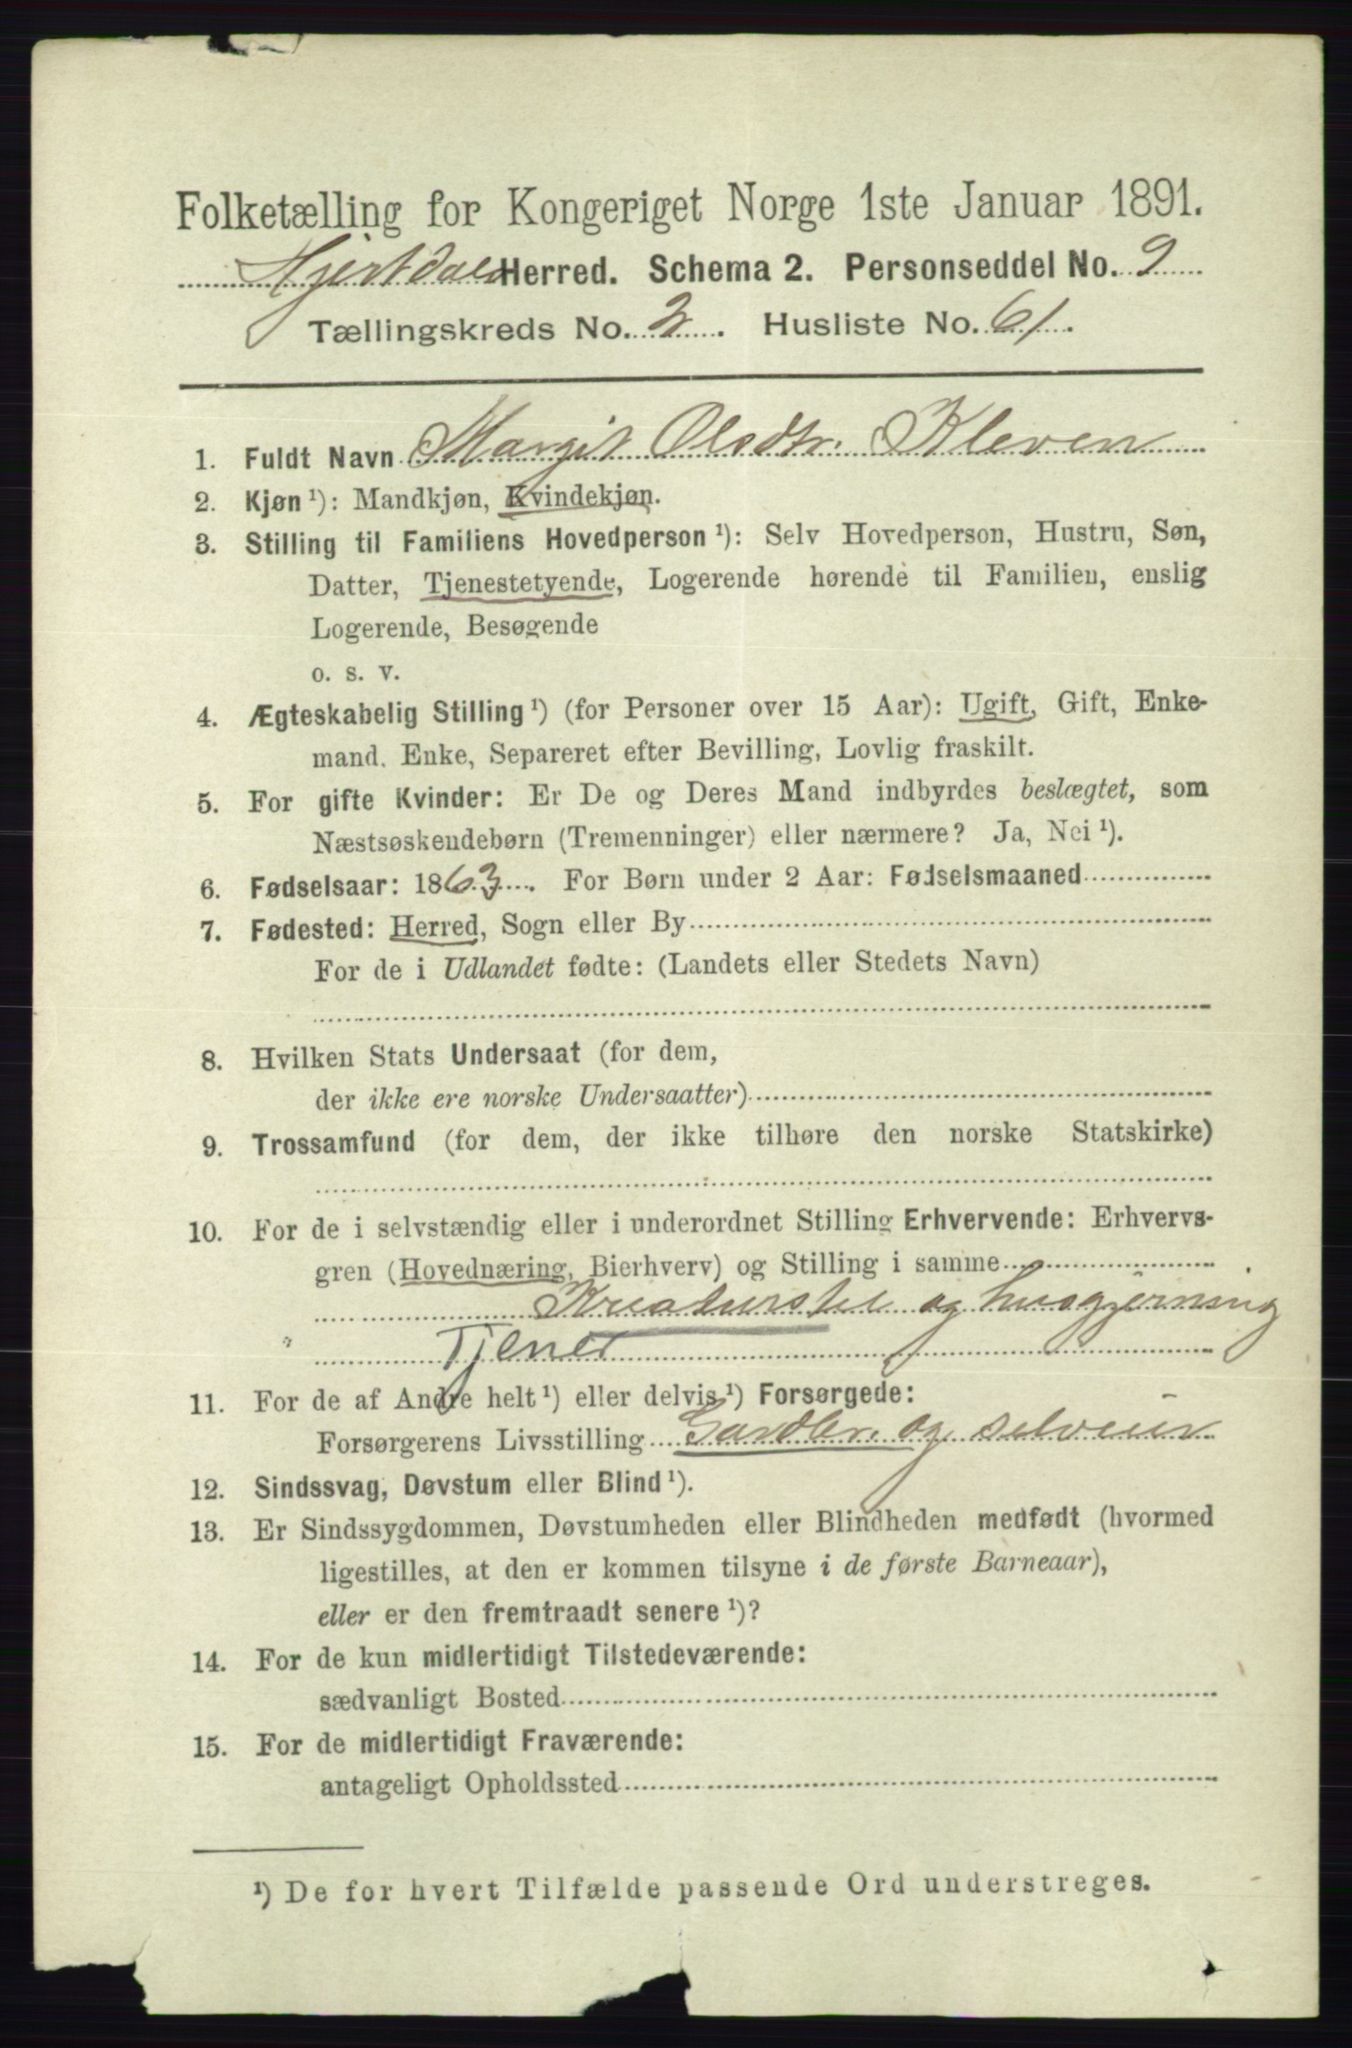 Folketælling for Kongeriget Norge 1ste Januar 1891.
Hjertdals Herred. Schema 2. Personseddel No. 9
Tællingskreds No. 2. Husliste No. 61.
1. Fuldt Navn Margit Olsdtr. Kleven
2. Kjøn ¹): Mandkjøn, Kvindekjøn.
3. Stilling til Familiens Hovedperson ¹): Selv Hovedperson, Hustru, Søn,
Datter, Tjenestetyende, Logerende hørende til Familien, enslig
Logerende, Besøgende
o. s. v.
4. Ægteskabelig Stilling ¹) (for Personer over 15 Aar): Ugift, Gift, Enke-
mand, Enke, Separeret efter Bevilling, Lovlig fraskilt.
5. For gifte Kvinder: Er De og Deres Mand indbyrdes beslægtet, som
Næstsøskendebørn (Tremenninger) eller nærmere? Ja, Nei ¹).
6. Fødselsaar: 1863. For Børn under 2 Aar: Fødselsmaaned
7. Fødested: Herred, Sogn eller By
For de i Udlandet fødte: (Landets eller Stedets Navn)
8. Hvilken Stats Undersaat (for dem,
der ikke ere norske Undersaatter)
9. Trossamfund (for dem, der ikke tilhøre den norske Statskirke)
10. For de i selvstændig eller i underordnet Stilling Erhvervende: Erhvervs-
gren (Hovednæring, Bierhverv) og Stilling i samme
Kreaturstel og husgjerning
Tjener
11. For de af Andre helt ¹) eller delvis ¹) Forsørgede:
Forsørgerens Livsstilling Gardbr. og selveier
12. Sindssvag, Døvstum eller Blind ¹).
13. Er Sindssygdommen, Døvstumheden eller Blindheden medfødt (hvormed
ligestilles, at den er kommen tilsyne i de første Barneaar),
eller er den fremtraadt senere ¹)?
14. For de kun midlertidigt Tilstedeværende:
sædvanligt Bosted
15. For de midlertidigt Fraværende:
antageligt Opholdssted
¹) De for hvert Tilfælde passende Ord understreges.